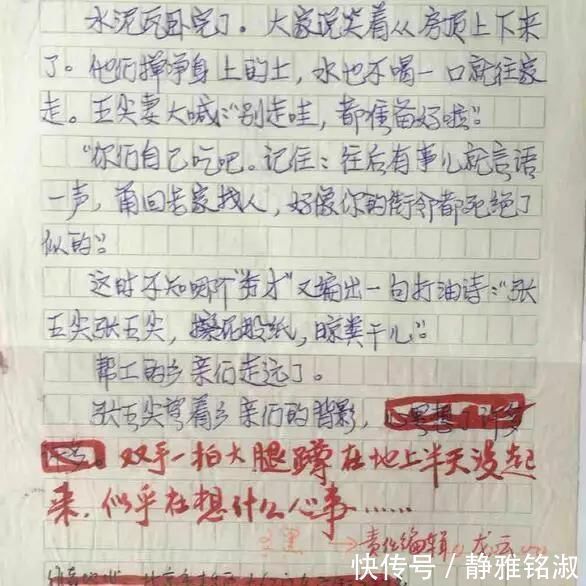 水泥瓦卧完了。大家说笑着从房顶上下来
了。他们掸净身上的土，水也不喝一口就往家
走。五尖妻大喊："别走哇，都准备好啦。"
"你们自己吃吧。记住：往后有事儿就言语
一声，甭回老家找人，好像你的街邻都死绝了
似的。"
这时不知哪个"秀才"又编出一句打油诗："张
五尖张五尖，擦屁股纸，晾粪干儿。"
帮工的乡亲们走远了。
张五尖望着乡亲们的背影，心里想了许多
双手一拍大腿蹲在地上半天没起
来，似乎在想什么心事……
责任编辑 龙云
快传号／静雅铭淑